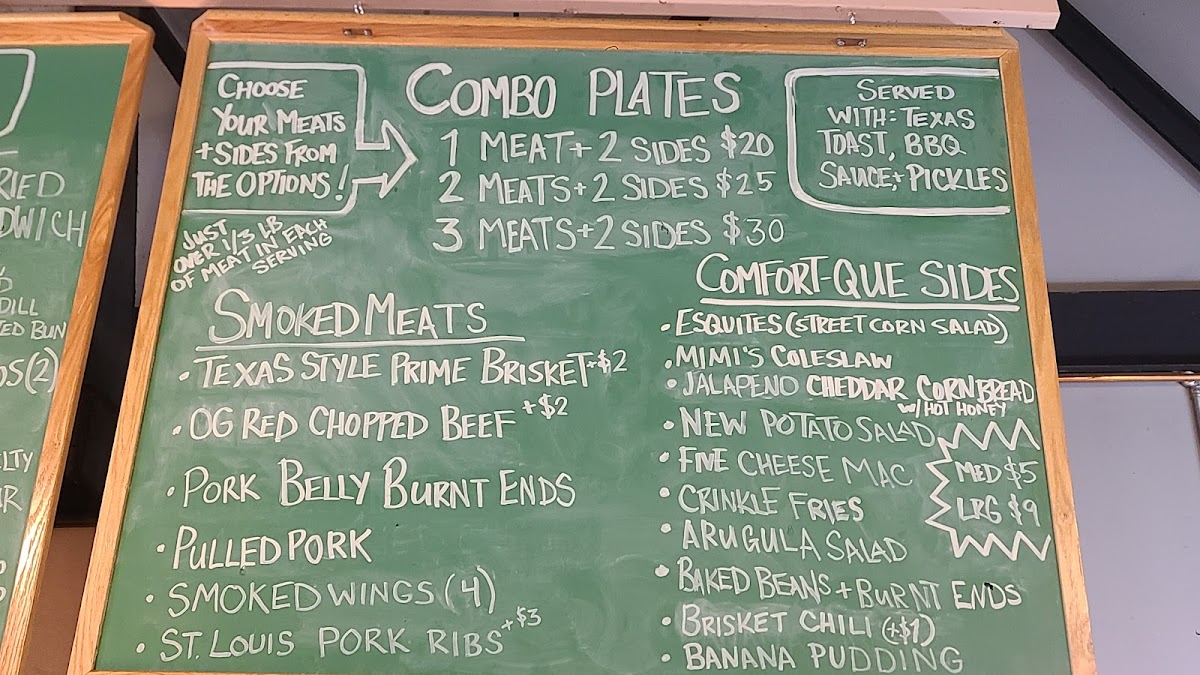 RIED
DWICH
DILL
TED BUN
OS(2)
LTY
CHOOSE
YOUR MEATS
+SIDES FROM
THE OPTIONS!
JUST
OVER 1/3 LB
OF MEAT IN EACH
SERVING
COMBO PLATES
1 MEAT+2 SIDES $20
2 MEATS+2 SIDES $25
3 MEATS+2 SIDES $30
SERVED
WITH: TEXAS
TOAST, BBQ
SAUCE,+ PICKLES
SMOKED MEATS
• TEXAS STYLE PRIME BRISKET +$2
• OG RED CHOPPED BEEF +$2
• PORK BELLY BURNT ENDS
• PULLED PORK
• SMOKED WINGS (4)
• ST. LOUIS PORK RIBS +$3
COMFORT-QUE SIDES
• ESQUITES (STREET CORN SALAD)
• MIMI'S COLESLAW
• JALAPENO CHEDDAR CORNBREAD
W/HOT HONEY
• NEW POTATO SALAD
• FIVE CHEESE MAC
• CRINKLE FRIES
• ARUGULA SALAD
• BAKED BEANS + BURNT ENDS
• BRISKET CHILI (+$1)
• BANANA PUDDING
MED $5
LRG $9